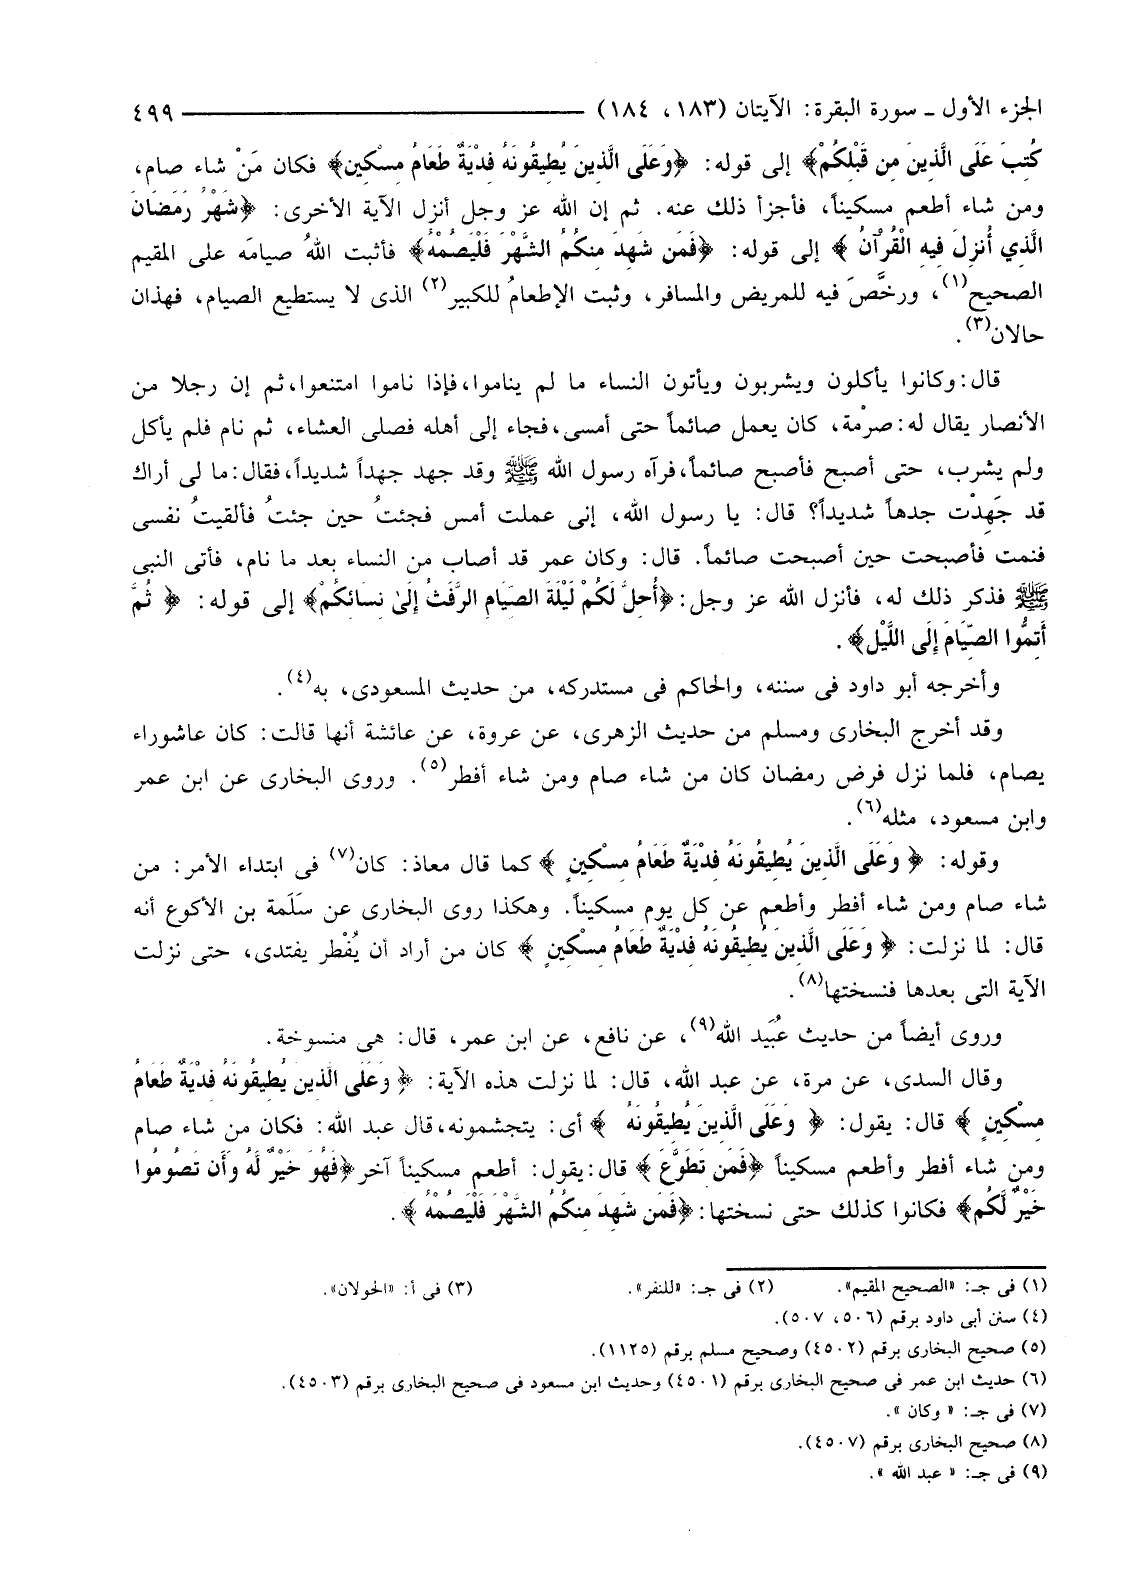 الجزء الأول ـ سورة البقرة: الآيتان (١٨٣، ١٨٤) ٤٩٩
كُتِبَ عَلَى الَّذِينَ مِن قَبْلِكُمْ﴾ إلى قوله: ﴿وَعَلَى الَّذِينَ يُطِيقُونَهُ فِدْيَةٌ طَعَامُ مِسْكِينٍ﴾ فكان مَنْ شاء صام،
ومن شاء أطعم مسكيناً، فأجزأ ذلك عنه. ثم إن الله عز وجل أنزل الآية الأخرى: ﴿شَهْرُ رَمَضَانَ
الَّذِي أُنزِلَ فِيهِ الْقُرْآنُ ﴾ إلى قوله: ﴿فَمَن شَهِدَ مِنكُمُ الشَّهْرَ فَلْيَصُمْهُ﴾ فأثبت اللهُ صيامَه على المقيم
الصحيح(١)، ورخَّصَ فيه للمريض والمسافر، وثبت الإطعامُ للكبير(٢) الذى لا يستطيع الصيام، فهذان
حالان(٣).
قال: وكانوا يأكلون ويشربون ويأتون النساء ما لم يناموا، فإذا ناموا امتنعوا، ثم إن رجلا من
الأنصار يقال له: صرْمة، كان يعمل صائماً حتى أمسى، فجاء إلى أهله فصلى العشاء، ثم نام فلم يأكل
ولم يشرب، حتى أصبح فأصبح صائماً، فرآه رسول الله ﷺ وقد جهد جهداً شديداً، فقال: ما لى أراك
قد جَهِدْت جدهاً شديداً؟ قال: يا رسول الله، إنى عملت أمس فجئتُ حين جئتُ فألقيتُ نفسى
فنمت فأصبحت حين أصبحت صائماً. قال: وكان عمر قد أصاب من النساء بعد ما نام، فأتى النبى
ﷺ فذكر ذلك له، فأنزل الله عز وجل: ﴿أُحِلَّ لَكُمْ لَيْلَةَ الصِّيَامِ الرَّفَثُ إِلَىٰ نِسَائِكُمْ﴾ إلى قوله: ﴿ ثُمَّ
أَتِمُّوا الصِّيَامَ إِلَى اللَّيْلِ﴾.
وأخرجه أبو داود فى سننه، والحاكم فى مستدركه، من حديث المسعودى، به(٤).
وقد أخرج البخارى ومسلم من حديث الزهرى، عن عروة، عن عائشة أنها قالت: كان عاشوراء
يصام، فلما نزل فرض رمضان كان من شاء صام ومن شاء أفطر(٥). وروى البخارى عن ابن عمر
وابن مسعود، مثله(٦).
وقوله: ﴿ وَعَلَى الَّذِينَ يُطِيقُونَهُ فِدْيَةٌ طَعَامُ مِسْكِينٍ ﴾ كما قال معاذ: كان(٧) فى ابتداء الأمر: من
شاء صام ومن شاء أفطر وأطعم عن كل يوم مسكيناً. وهكذا روى البخارى عن سَلَمة بن الأكوع أنه
قال: لما نزلت: ﴿ وَعَلَى الَّذِينَ يُطِيقُونَهُ فِدْيَةٌ طَعَامُ مِسْكِينٍ ﴾ كان من أراد أن يُفْطر يفتدى، حتى نزلت
الآية التى بعدها فنسختها(٨).
وروى أيضاً من حديث عُبَيد الله(٩)، عن نافع، عن ابن عمر، قال: هى منسوخة.
وقال السدى، عن مرة، عن عبد الله، قال: لما نزلت هذه الآية: ﴿ وَعَلَى الَّذِينَ يُطِيقُونَهُ فِدْيَةٌ طَعَامُ
مِسْكِينٍ ﴾ قال: يقول: ﴿ وَعَلَى الَّذِينَ يُطِيقُونَهُ ﴾ أى: يتجشمونه، قال عبد الله: فكان من شاء صام
ومن شاء أفطر وأطعم مسكيناً ﴿فَمَن تَطَوَّعَ ﴾ قال: يقول: أطعم مسكيناً آخر ﴿فَهُوَ خَيْرٌ لَّهُ وَأَن تَصُومُوا
خَيْرٌ لَّكُمْ﴾ فكانوا كذلك حتى نسختها: ﴿فَمَن شَهِدَ مِنكُمُ الشَّهْرَ فَلْيَصُمْهُ ﴾.
(١) فى جـ: «الصحيح المقيم». (٢) فى جـ: «للنفر». (٣) فى أ: «الحولان».
(٤) سنن أبى داود برقم (٥٠٦، ٥٠٧).
(٥) صحيح البخارى برقم (٤٥٠٢) وصحيح مسلم برقم (١١٢٥).
(٦) حديث ابن عمر فى صحيح البخارى برقم (٤٥٠١) وحديث ابن مسعود فى صحيح البخارى برقم (٤٥٠٣).
(٧) فى جـ: « وكان ».
(٨) صحيح البخارى برقم (٤٥٠٧).
(٩) فى جـ: « عبد الله ».